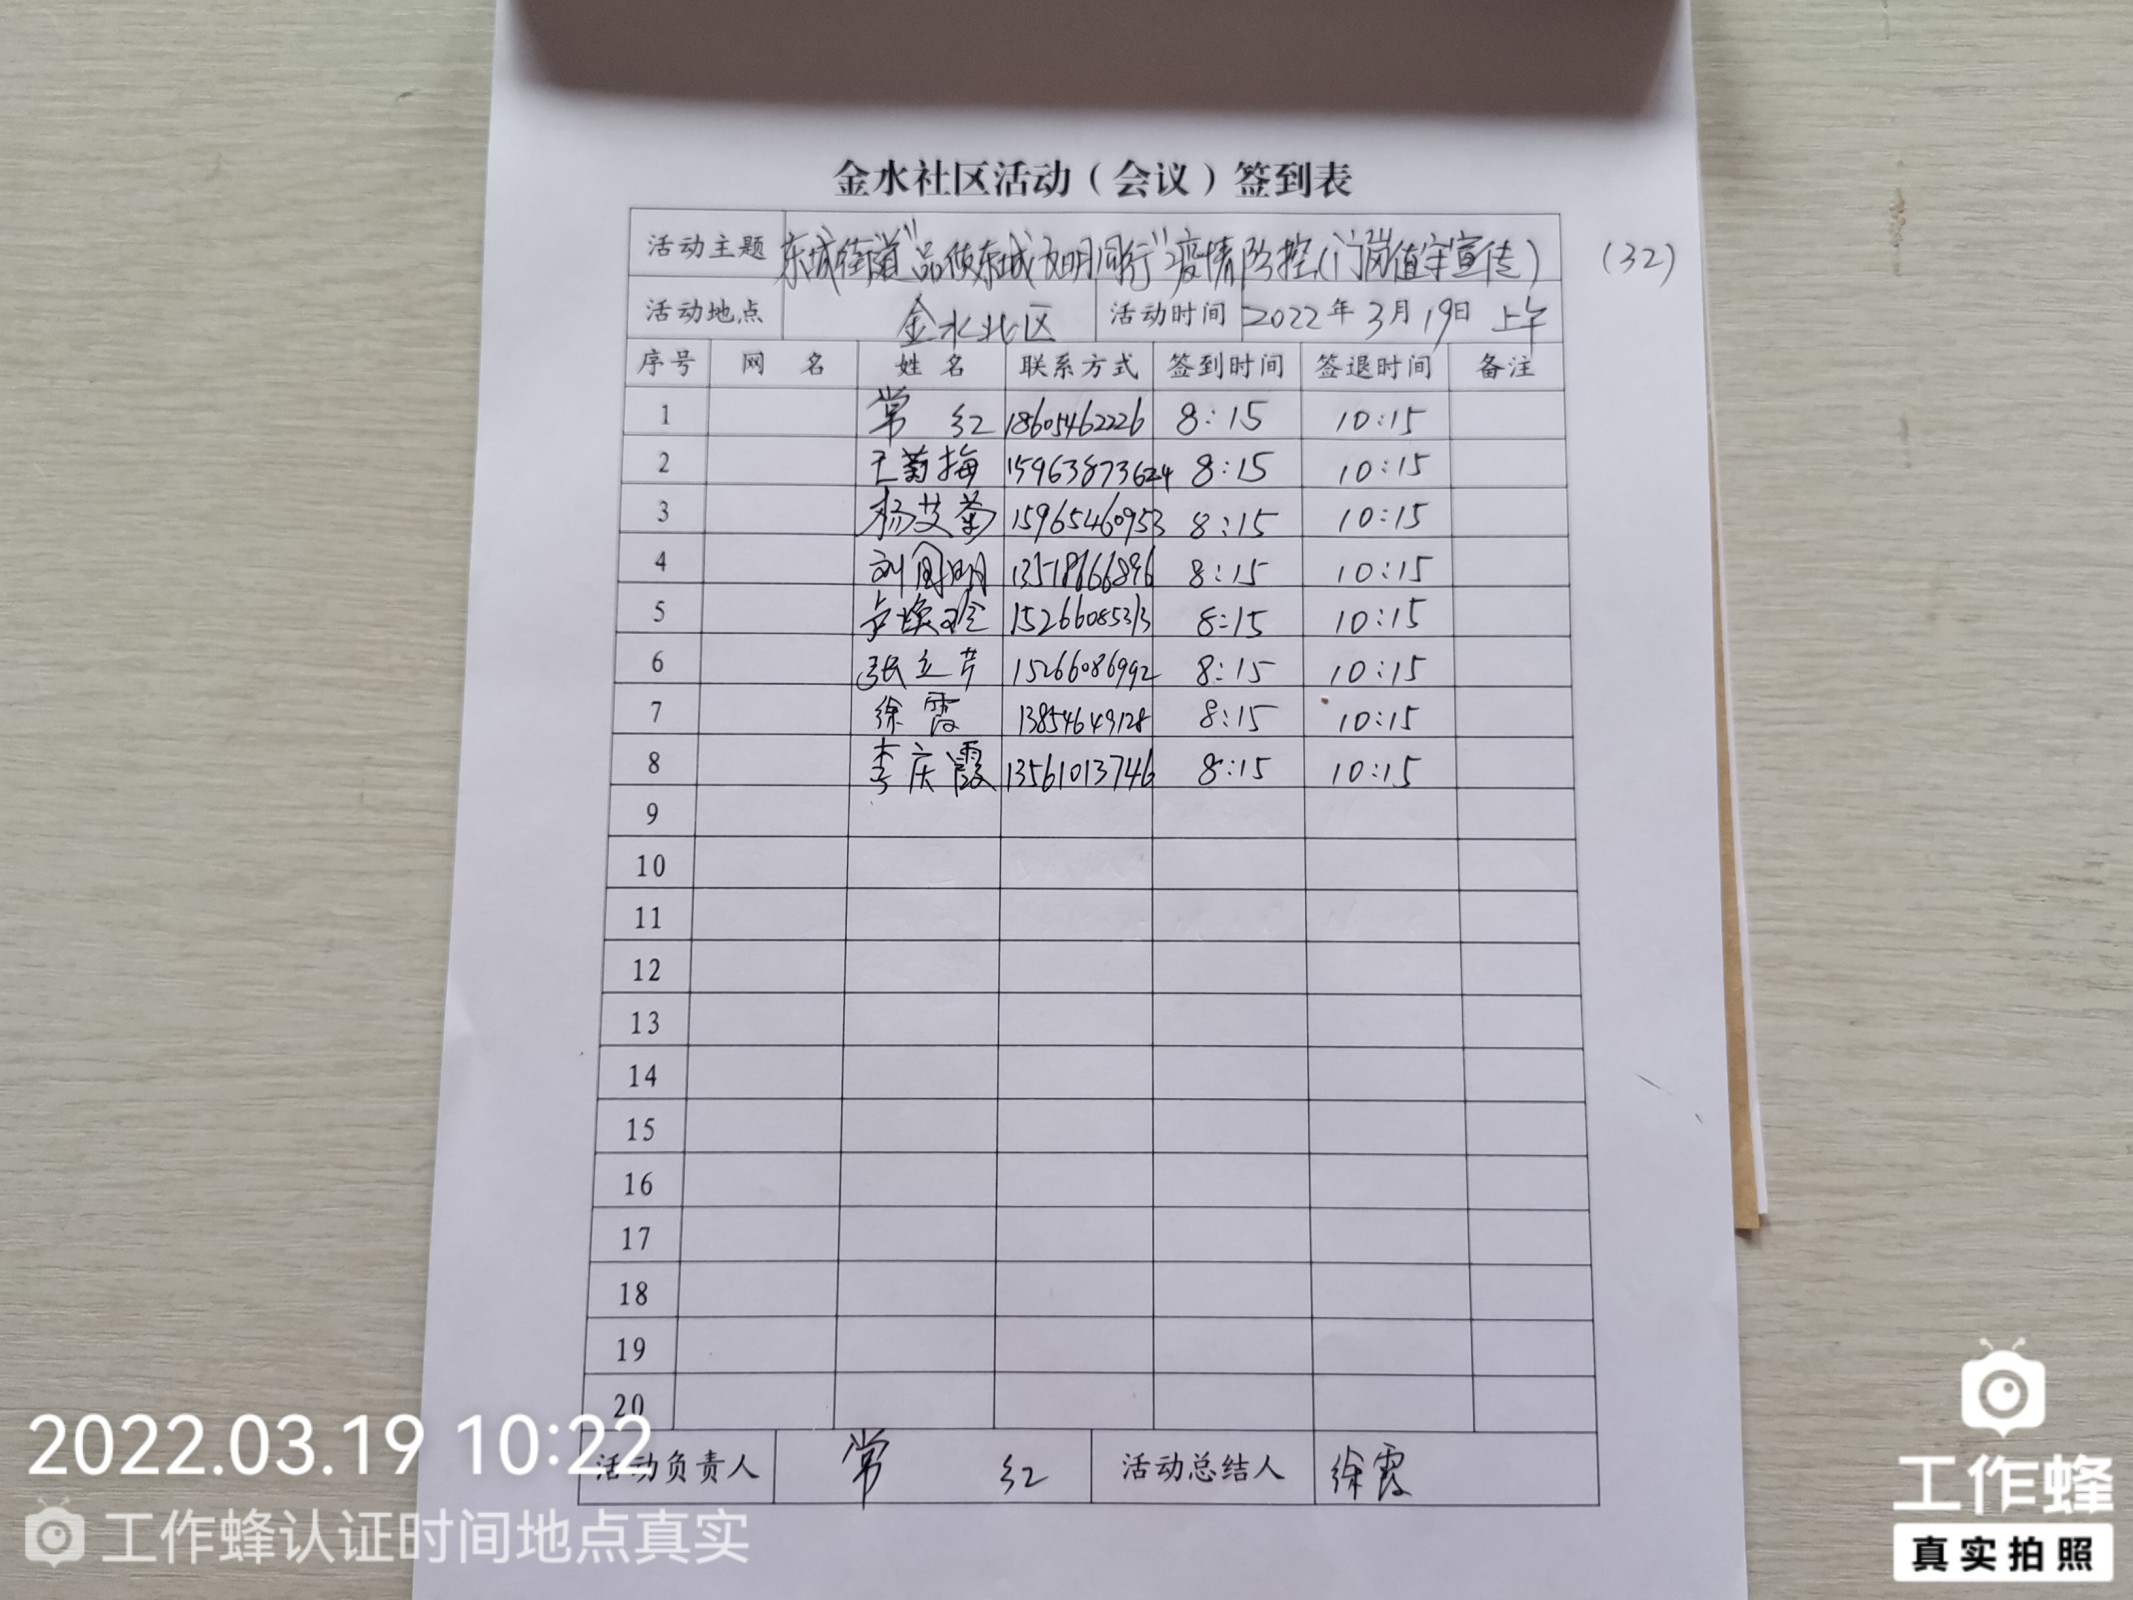 金水社区活动（会议）签到表
活动主题 东城街道"品质东城 文明同行"疫情防控（门岗值守宣传） （32）
活动地点 金水北区 活动时间 2022年3月19日 上午
序号 网 名 姓 名 联系方式 签到时间 签退时间 备注
1 常 红 18605462226 8:15 10:15
2 王菊梅 15963873624 8:15 10:15
3 杨艾菊 15965460953 8:15 10:15
4 刘 明 13518666896 8:15 10:15
5 卢焕玲 15266085313 8:15 10:15
6 张立芹 15266086992 8:15 10:15
7 徐霞 13854649128 8:15 10:15
8 李庆霞 13561013746 8:15 10:15
9
10
11
12
13
14
15
16
17
18
19
20
活动负责人 常 红 活动总结人 徐霞
2022.03.19 10:22
工作蜂认证时间地点真实
工作蜂
真实拍照